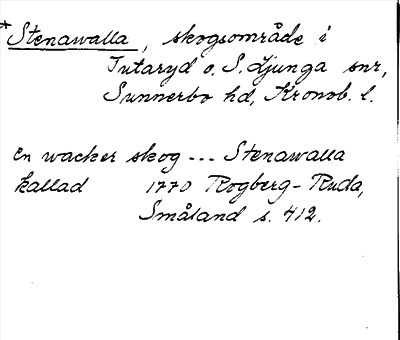 *Stenawalla, skogsområde i
Tutaryd o. S. Ljunga snr,
Sunnerbo hd, Kronob. l.
En wacker skog --- Stenawalla
kallad 1770 Rogberg-Ruda,
Småland s. 412.